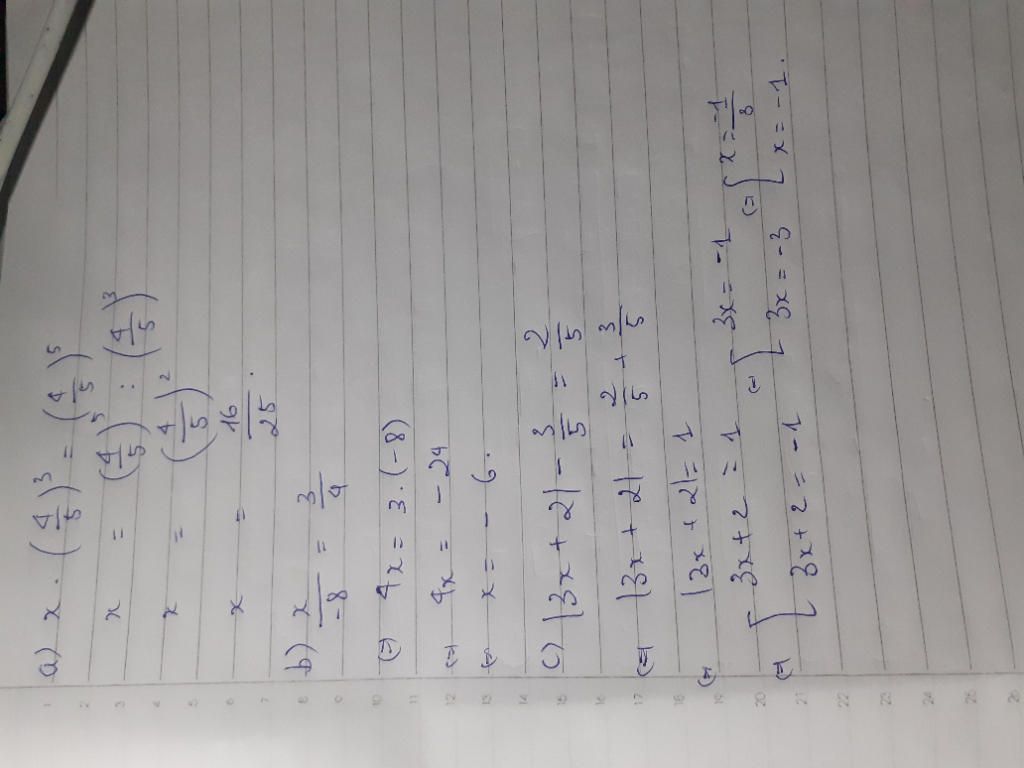 a) x . (4/5)^3 = (4/5)^5
x = (4/5)^5 : (4/5)^3
x = (4/5)^2
x = 16/25 .
b) x/-8 = 3/4
(=) 4x = 3 . (-8)
(=) 4x = - 24
(=) x = - 6 .
c) |3x + 2| - 3/5 = 2/5
(=) |3x + 2| = 2/5 + 3/5
(=) |3x + 2| = 1
(=) [ 3x + 2 = 1 (=) [ 3x = -1 (=) [ x = -1/3
3x + 2 = -1 3x = -3 x = -1 .
1
2
3
4
5
6
7
8
9
10
11
12
13
14
15
16
17
18
19
20
21
22
23
24
25
26